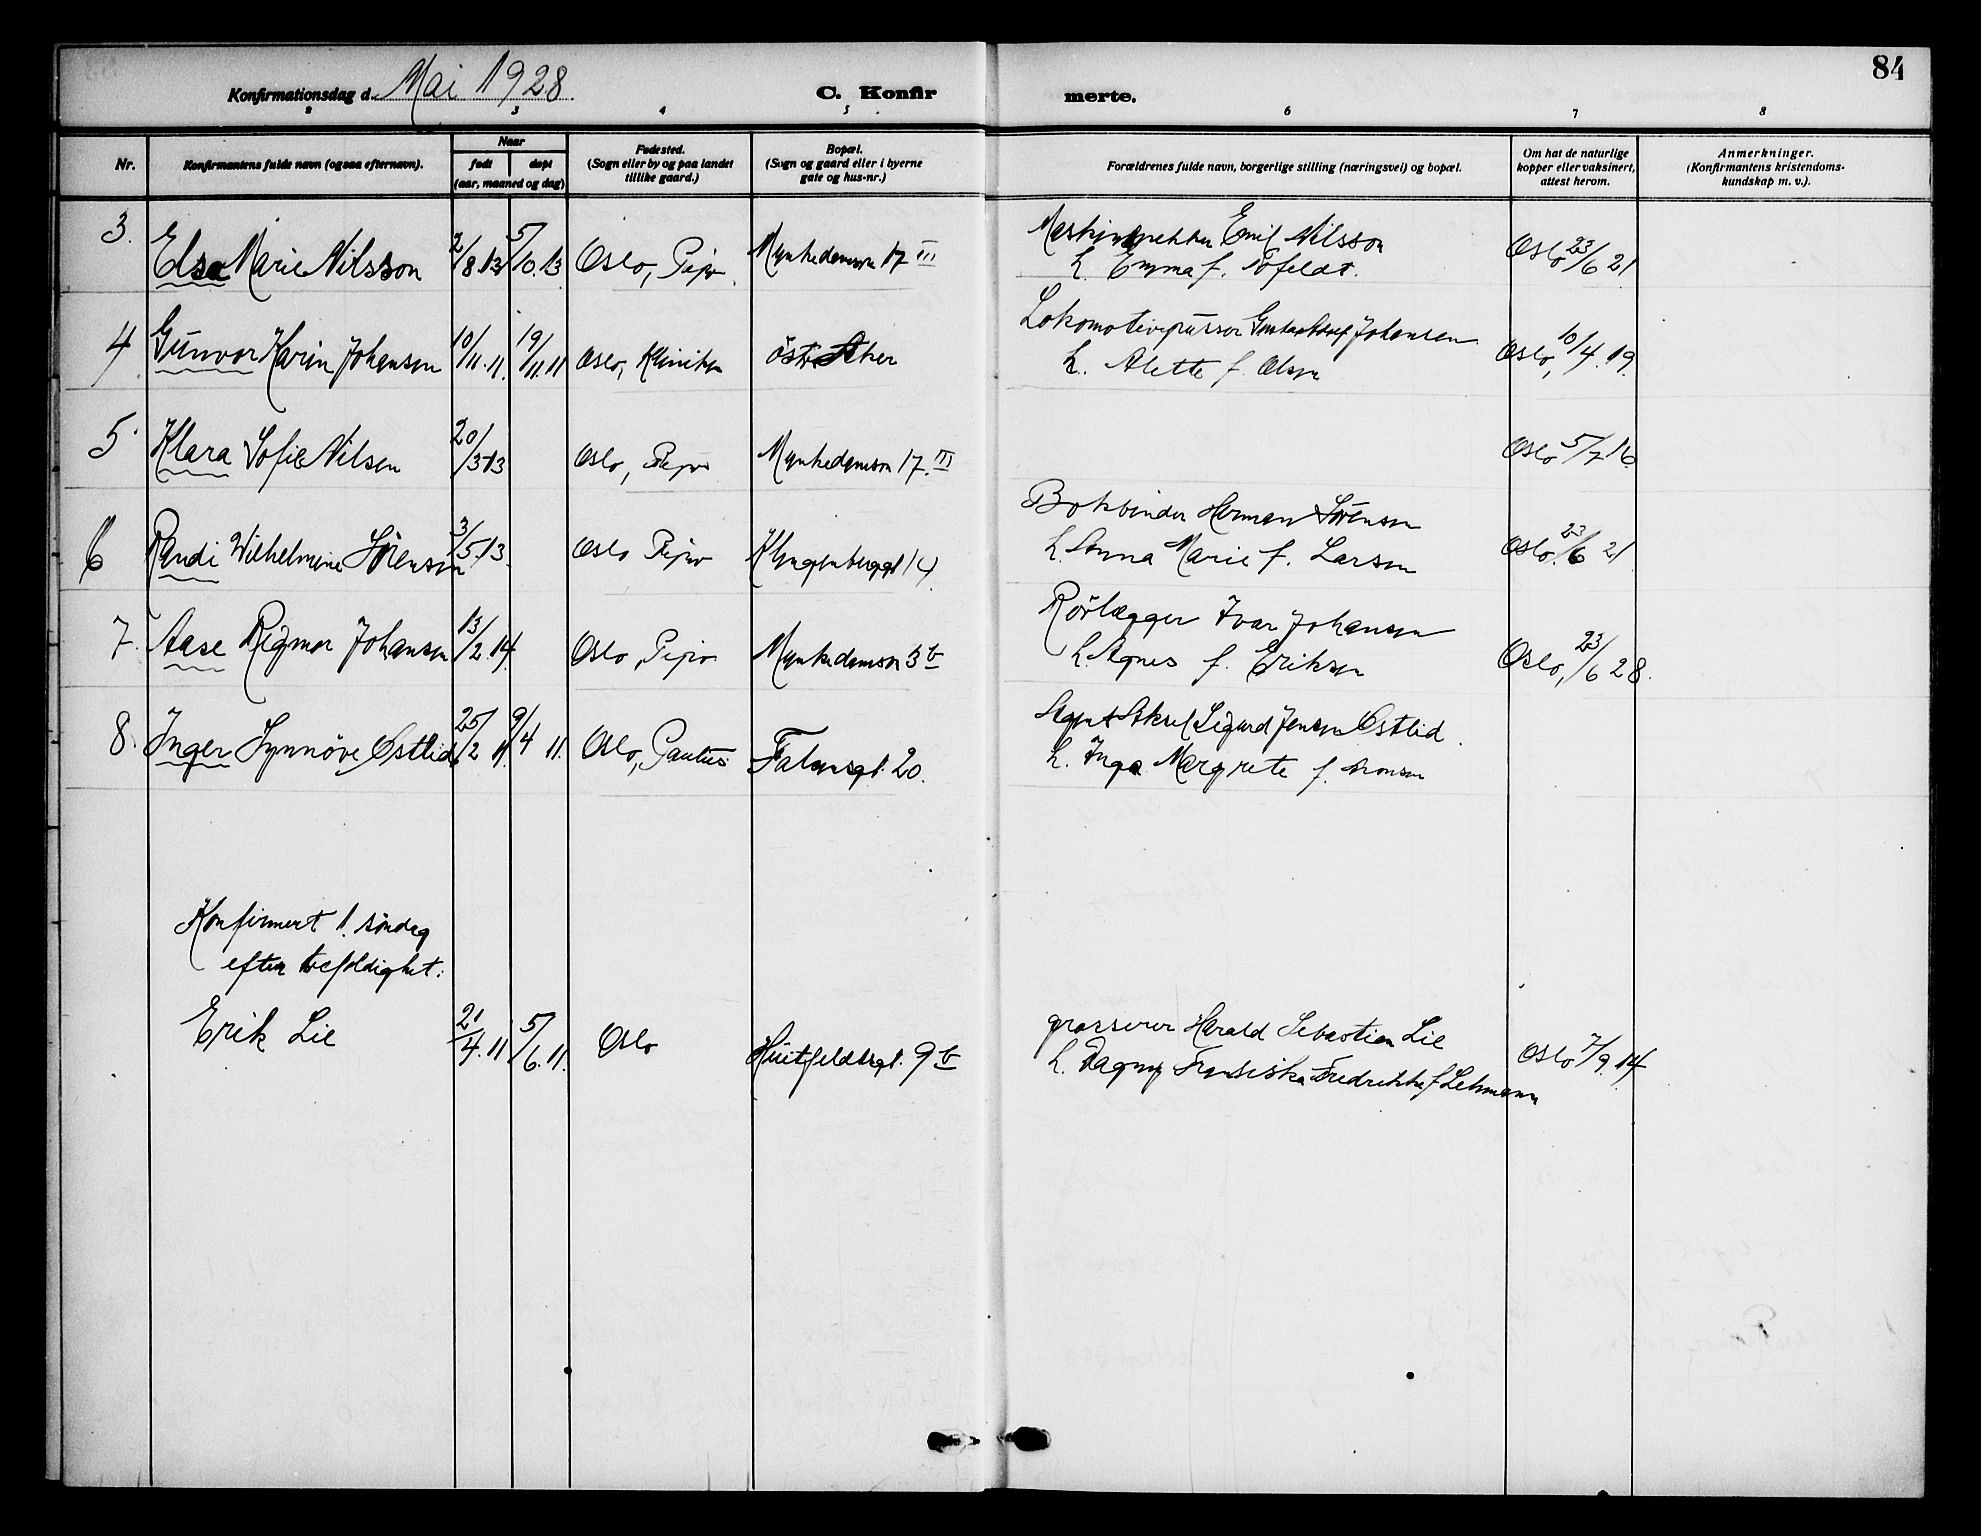 84
Konfirmationsdag d. Mai 1928
C. Konfirmerte.
2 3 4 5 6 7 8
Nr.
Konfirmantens fulde navn (ogsaa efternavn).
Naar
født
døpt
(aar, maaned og dag)
Fødested.
(Sogn eller by og paa landet
tillike gaard.)
Bopæl.
(Sogn og gaard eller i byerne
gate og hus-nr.)
Forældrenes fulde navn, borgerlige stilling (næringsvei) og bopæl.
Om hat de naturlige
kopper eller vaksinert,
attest herom.
Anmerkninger.
(Konfirmantens kristendoms-
kundskap m. v.).
3. Elsa Marie Nilsson 2/8 13 5/10.13 Oslo, Piperv. Munkedamsvn 17 III
Emil Nilsson
h. Emma f.
Oslo 23/6 21
4 Gunvor Karin Johansen 10/11.11. 19/11.11 Oslo, Kliniken Østre Aker
Lokomotivpusser Gustav Adolf Johansen
h. Alette f. Olsen
Oslo, 10/4. 19.
5 Klara Sofie Nilsen 20/3.13 Oslo, Piperv Munkedamsvn 17. III
Oslo 5/7 16
6 Randi Wilhelmine Sörensen 3/5.13. Oslo Piperv Klingenberggt 14
Bokbinder Herman Sörensen
h. Anna Marie f. Larsen
Oslo. 23/6 21
7. Aase Rigmor Johansen 13/2.14. Oslo, Piperv Munkedamsvn 3b
Rörlægger Ivar Johansen
h. Agnes f. Eriksen
Oslo, 23/6 28.
8. Inger Synnöve Östlid 25/2 11. 9/4 11. Oslo, Paulus Falsensgt. 20.
Agent Aksel Sigurd Jensen Östlid.
h. Inga Margrete f. Aronsen
Konfirmert 1. söndag
efter trefoldighet:
Erik Lie 21/4.11 5/6.11. Oslo Huitfeldtsgt. 9b
grosserer Harald Sebastian Lie
h. Dagny Fransiska Fredrikke f Lehmann
Oslo 7/9.14